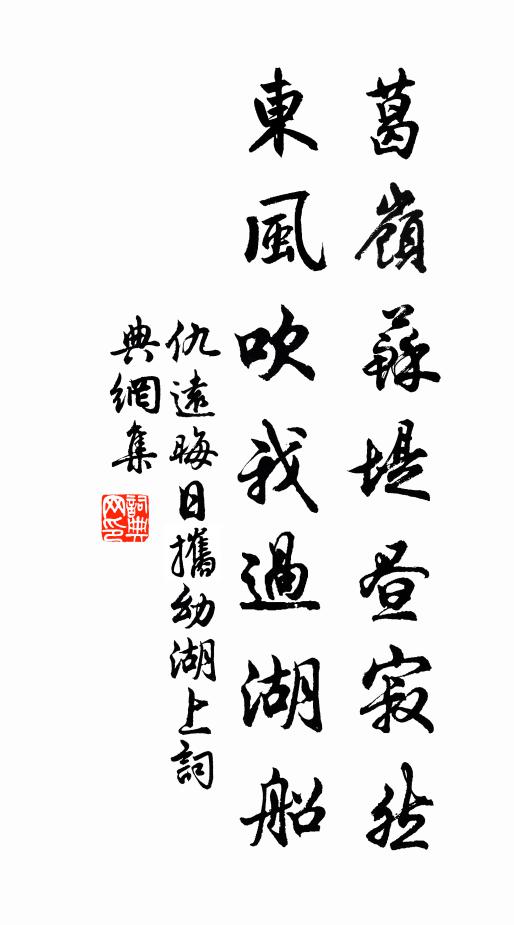 葛嶺蘇堤昼寂然
東風吹我過湖船
仇遠晦日攜幼湖上詞
典網集
詞典网印